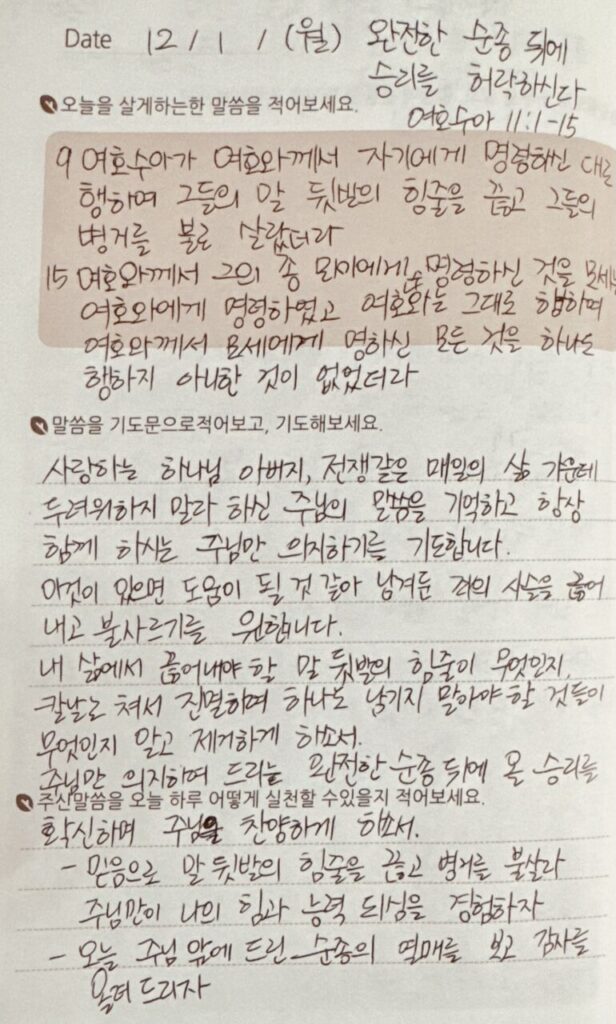 Date 12 / 1 / (월) 완전한 순종 뒤에
승리를 허락하신다
오늘을 살게하는한 말씀을 적어보세요.
여호수아 11:1-15
9 여호수아가 여호와께서 자기에게 명령하신 대로
행하여 그들의 말 뒷발의 힘줄을 끊고 그들의
병거를 불로 살랐더라
15 여호와께서 그의 종 모세에게 명령하신 것을 모세는
여호와에게 명령하였고 여호와는 그대로 행하여
여호와께서 모세에게 명하신 모든 것을 하나도
행하지 아니한 것이 없었더라
말씀을 기도문으로적어보고, 기도해보세요.
사랑하는 하나님 아버지, 전쟁같은 매일의 삶 가운데
두려워하지 말라 하신 주님의 말씀을 기억하고 항상
함께 하시는 주님만 의지하기를 기도합니다.
이것이 있으면 도움이 될 것 같아 남겨둔 죄의 사슬을 끊어
내고 불사르기를 원합니다.
내 삶에서 끊어내야 할 말 뒷발의 힘줄이 무엇인지,
칼날로 쳐서 진멸하여 하나도 남기지 말아야 할 것들이
무엇인지 알고 제거하게 하소서.
주님만 의지하며 드리는 완전한 순종 뒤에 올 승리를
주신말씀을 오늘 하루 어떻게 실천할 수있을지 적어보세요.
확신하며 주님을 찬양하게 하소서.
- 믿음으로 말 뒷발의 힘줄을 끊고 병거를 불살라
주님만이 나의 힘과 능력 되심을 경험하자
- 오늘 주님 앞에 드린 순종의 열매를 보고 감사를
올려 드리자